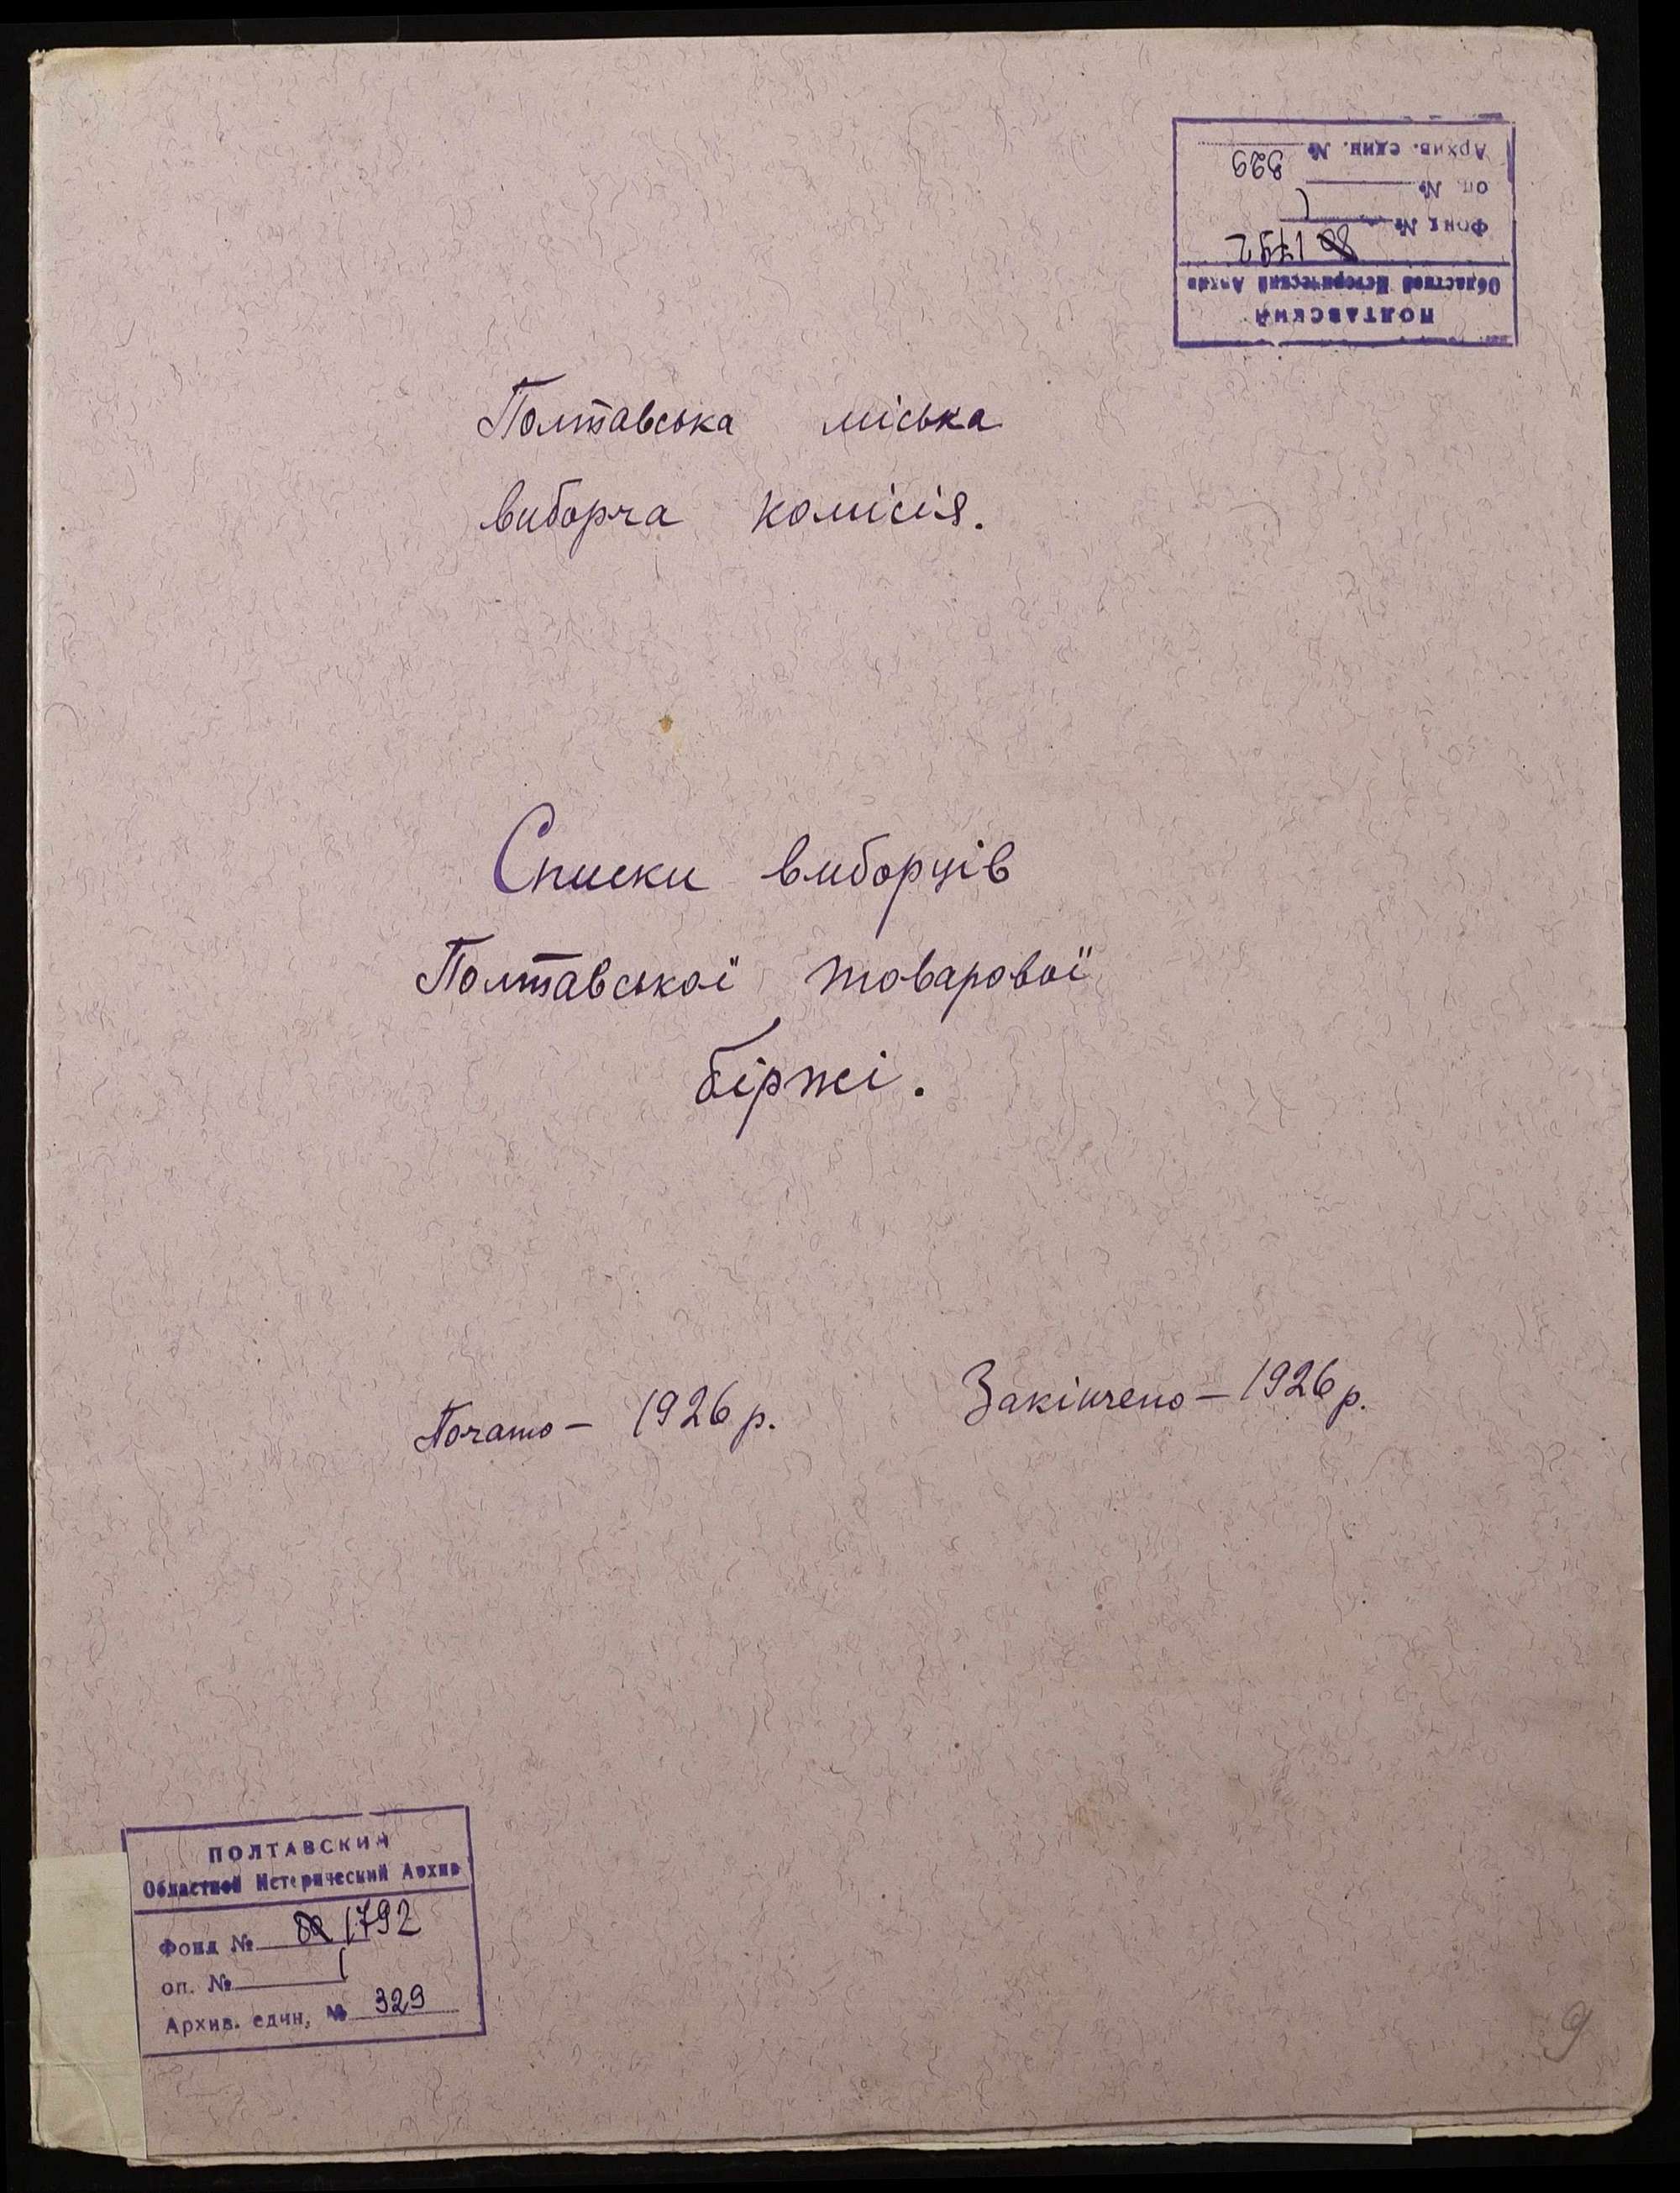 ПОЛТАВСКИЙ
Областной Исторический Архив
Фонд № 80 1792
оп. № 1
Архив. един. № 329
Полтавська міська
виборча комісія.
Списки виборців
Полтавської товарової
біржі.
Почато – 1926 р.
Закінчено – 1926 р.
ПОЛТАВСКИЙ
Областной Исторический Архив
Фонд № 80 1792
оп. № 1
Архив. един. № 329
9